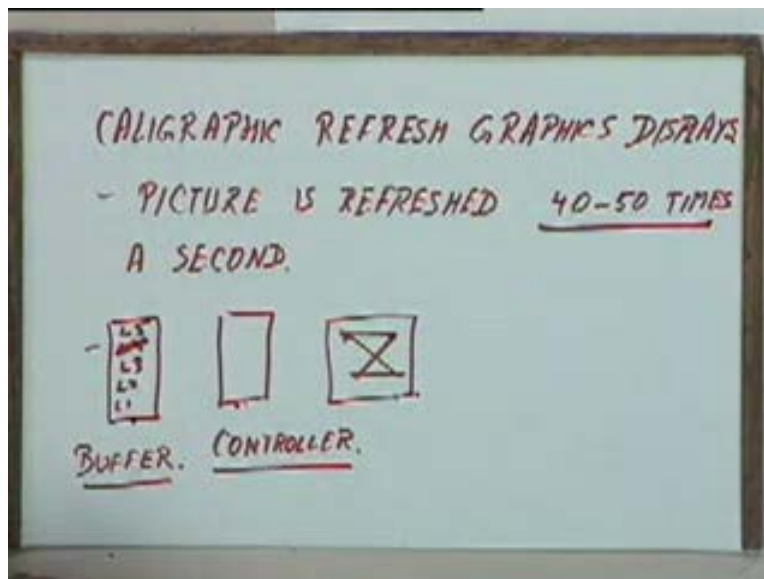 CALIGRAPHIC REFRESH GRAPHICS DISPLAYS
- PICTURE IS REFRESHED 40-50 TIMES
A SECOND.
L3
L2
L1
BUFFER. CONTROLLER.